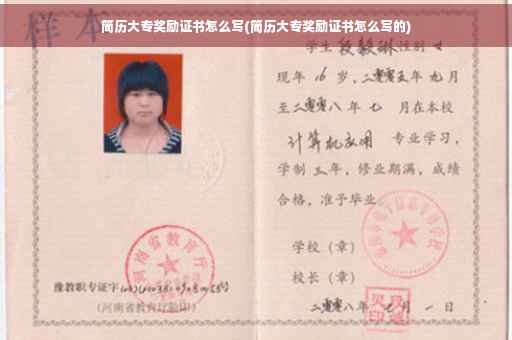 简历大专奖励证书怎么写(简历大专奖励证书怎么写的)
样本
学生 段毅琳 性别 女
现年 16 岁，二零零五年 九月
至二零零八年 七 月在本校
计算机应用 专业学习，
学制 三 年，修业期满，成绩
合格，准予毕业
学校（章）
校长（章）
二零零八年 七 月 一 日
河南省教育厅
豫教职专证字
(河南省教育厅验印)